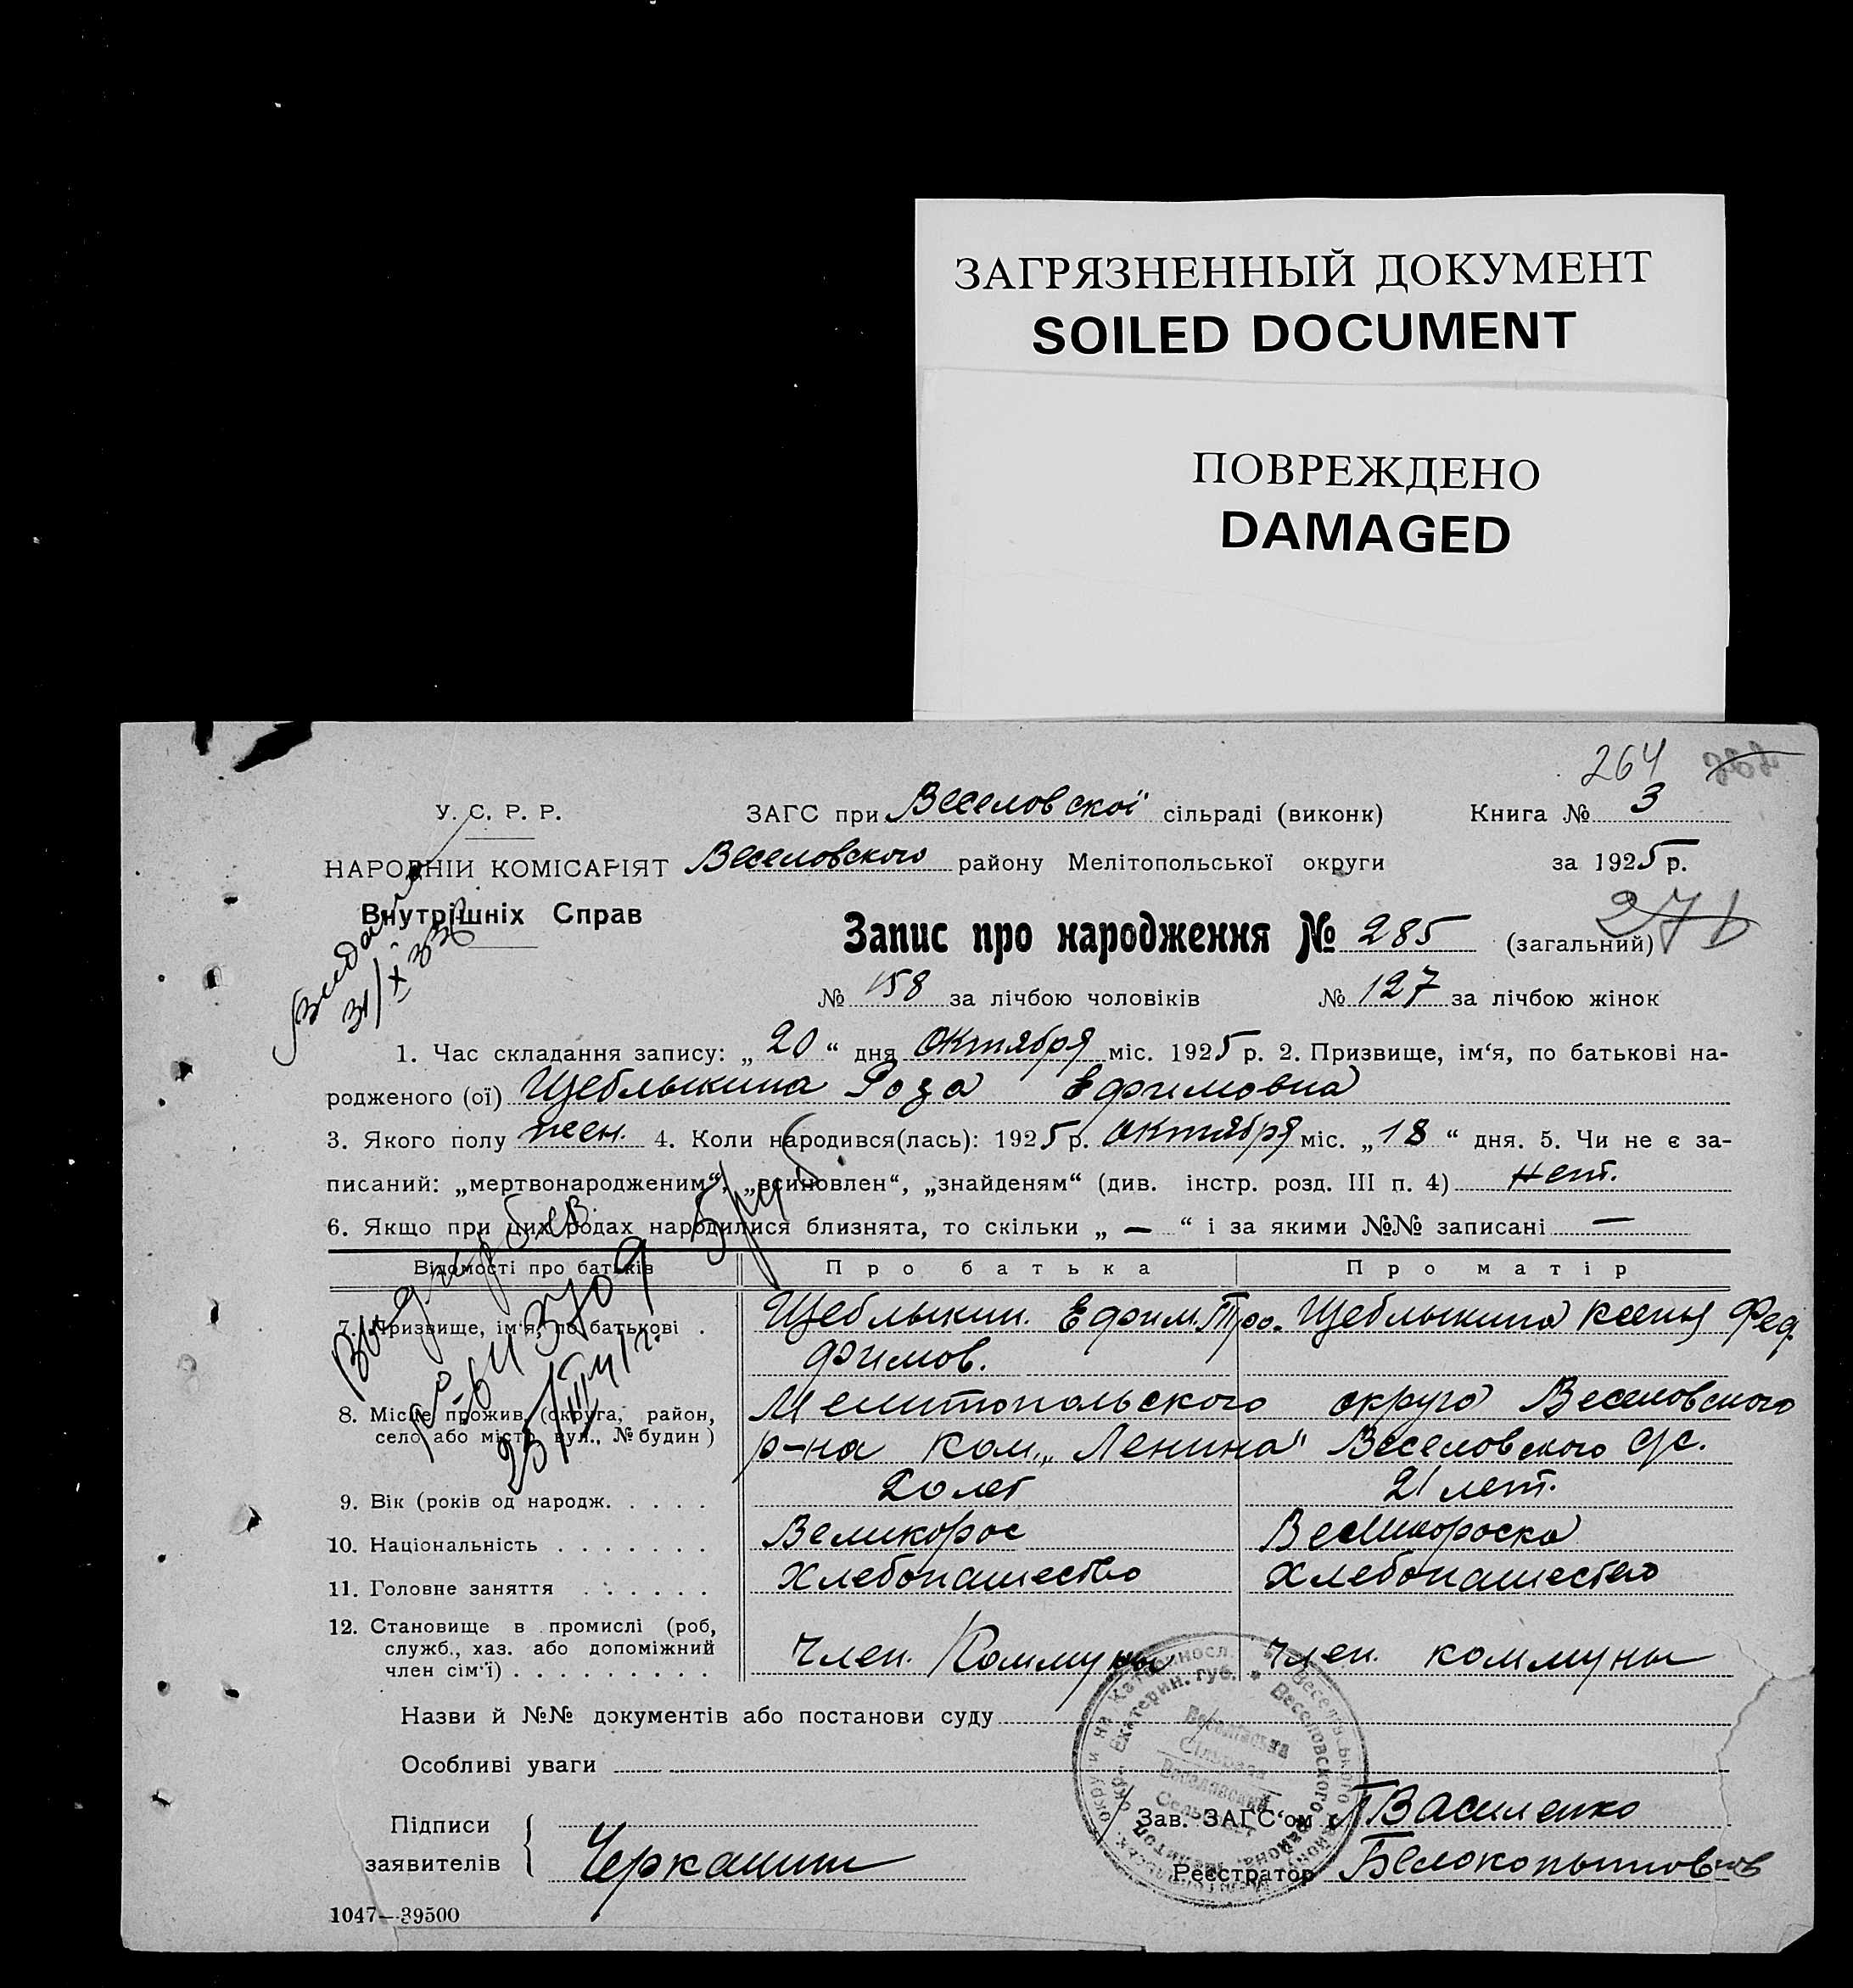 ЗАГРЯЗНЕННЫЙ ДОКУМЕНТ
SOILED DOCUMENT
ПОВРЕЖДЕНО
DAMAGED
264
У. С. Р. Р. ЗАГС при Веселовскої сільраді (виконк) Книга № 3
НАРОДНІЙ КОМІСАРІЯТ Веселовского району Мелітопольської округи за 1925 р.
Внутрішніх Справ
Запис про народження № 285 (загальний)
№ 158 за лічбою чоловіків № 127 за лічбою жінок
1. Час складання запису: „ 20 “ дня Октября міс. 1925 р. 2. Призвище, ім‘я, по батькові на-
родженого (ої) Щеблыкина Роза Ефимовна
3. Якого полу жен. 4. Коли народився(лась): 1925 р. октября міс. „ 18 “ дня. 5. Чи не є за-
писаний: „мертвонародженим“, „всиновлен“, „знайденям“ (див. інстр. розд. III п. 4) нет.
6. Якщо при цих родах народилися близнята, то скільки „ — “ і за якими №№ записані —
Відомості про батьків Про батька Про матір
7. Призвище, ім‘я, по батькові . Щеблыкин. Ефим. Тро- Щеблыкина Ксения Фед.
фимов.
8. Місце прожив. (округа, район, Мелитопольского округа Веселовского
село або місто, вул., № будин) р-на ком. „Ленина“ Веселовского с/с.
9. Вік (років од народж. . . . . 20 лет 21 лет.
10. Національність . . . . . . . Великорос Великороска
11. Головне заняття . . . . . . Хлебопашество Хлебопашество
12. Становище в промислі (роб,
служб., хаз. або допоміжний Член. Коммуны Член. коммуны
член сім‘ї) . . . . . . . . .
Назви й №№ документів або постанови суду
Особливі уваги
Підписи Зав. ЗАГС‘ом Василенко
заявителів Реєстратор Белокопытов
1047—39500